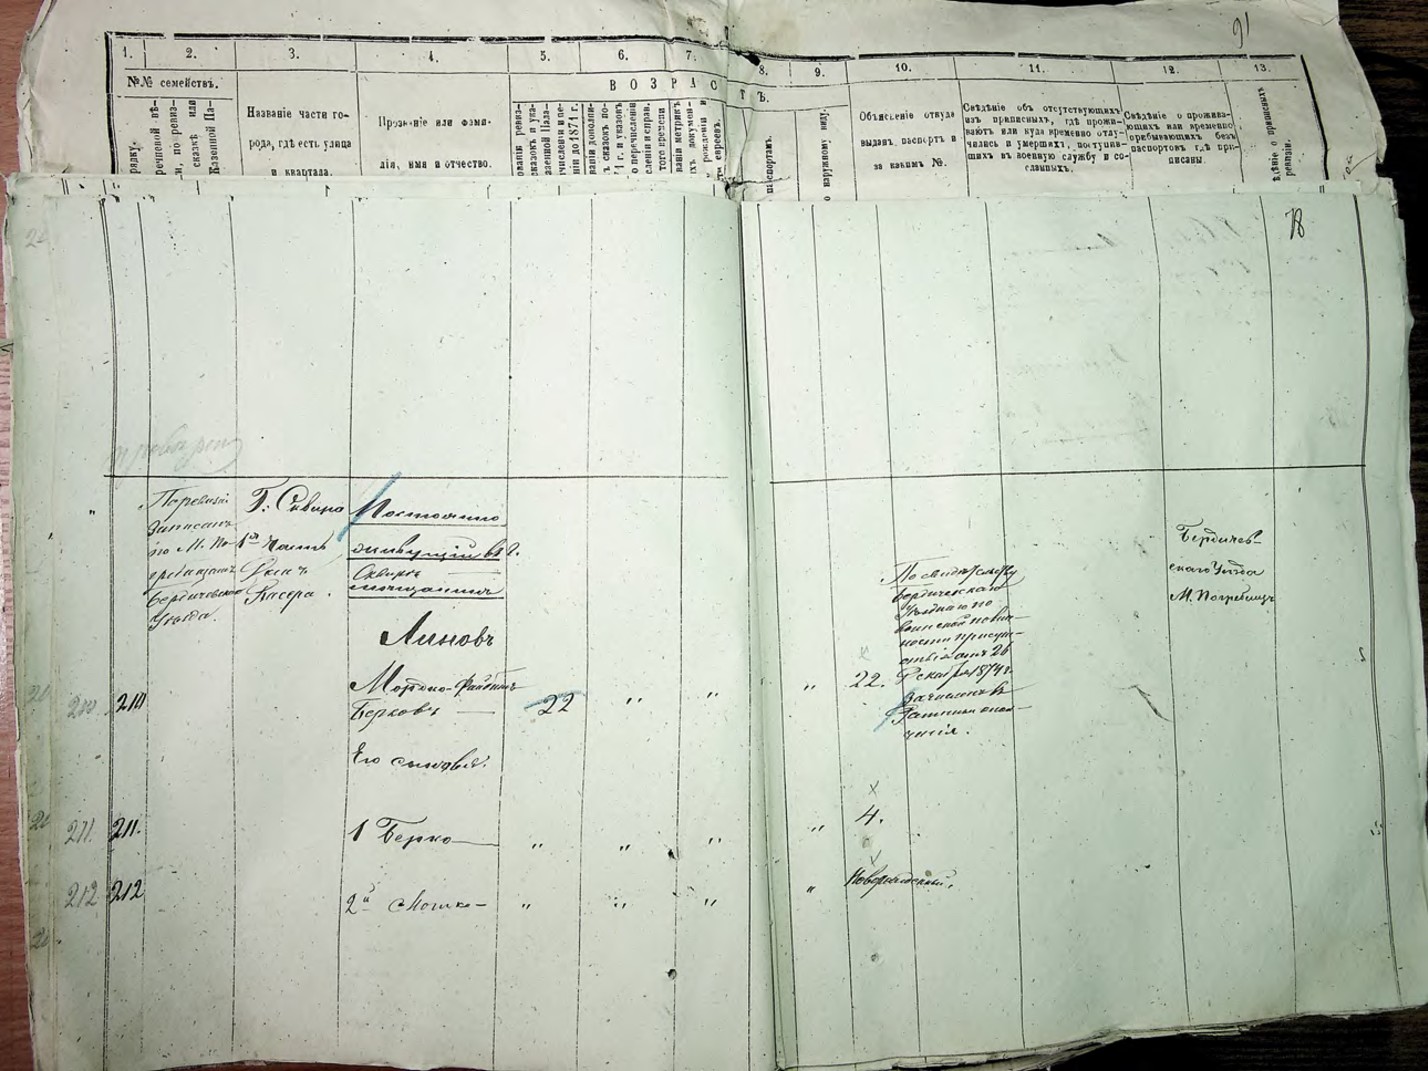 91
1. 2. 3. 4. 5. 6. 7. 8. 9. 10. 11. 12. 13.
№№ семействъ.
В О З Р А С Т Ъ.
рядку.
речневой вѣ-
и, по ревиз-
сказкѣ или
Казенной Па-
Названіе части го-
рода, гдѣ есть улица
и квартала.
Прозваніе или фами-
лія, имя и отчество.
ованіи ревиз-
сказокъ и ука-
азенной Пала-
ичисленіи и пе-
ніи до 1871 г.
ваніи дополни-
ъ сказокъ по-
71 г. и указовъ
о перечисленіи
сленіи и справ.
того времени
ваніи метрикъ
хъ докумен-
рожденіи и
ти евреевъ.
паспортамъ.
о наружному виду.
Объясненіе откуда
выданъ паспортъ и
за какимъ №.
Свѣдѣніе объ отсутствующихъ
изъ приписныхъ, гдѣ прожи-
ваютъ или куда временно отлу-
чились и умершихъ, поступив-
шихъ въ военную службу и со-
сланныхъ.
Свѣдѣніе о прожива-
ющихъ или временно
пребывающихъ безъ
паспортовъ гдѣ при-
писаны.
ѣдѣніе о приписныхъ
ревизіи.
78
По ревизіи
записанъ
по М. По-
гребищамъ
Бердичевскаго
Уѣзда.
Г. Сквира
1ая Часть
Постоянно
живущій въ г.
Сквирѣ
мѣщанинъ
Линовъ
210 210
Мордко-
Берковъ
22 " " " 22.
По свидѣтельству
Бердичевскаго
Уѣзднаго по
воинской повин-
ности присут-
ствія отъ 26
Декабря 1874 г.
зачисленъ въ
Ратники опол-
ченія.
Бердичев-
скаго Уѣзда
М. Погребищъ
Его сыновья:
211. 211. 1 Берко " " " " 4.
212 212 2й Мошко " " " " Новорожденный.